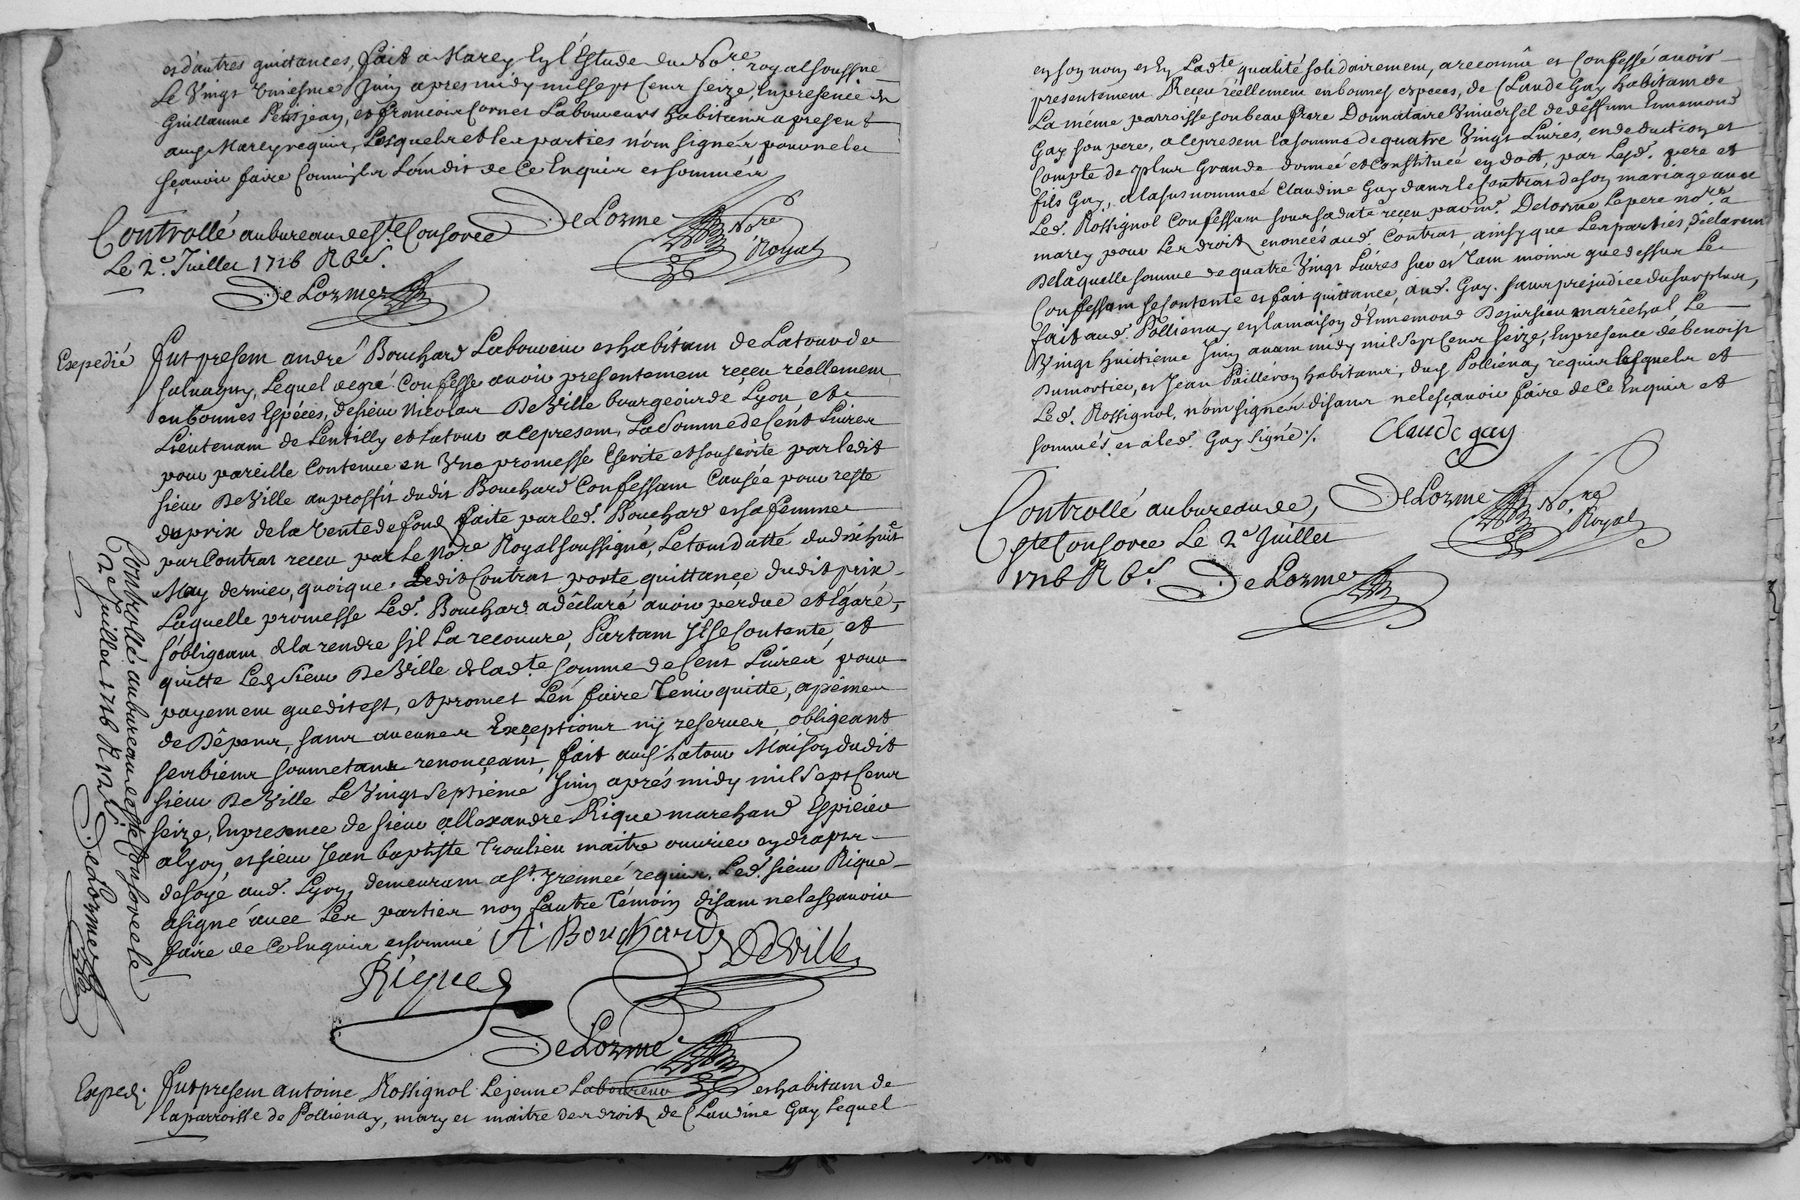 et d'autres quittances, fait a Marcy En l'Estude du No.re royal soussigné
Le Vingt Juin apres midy mil sept Cent seize, En presence de
Guillaume Petitjean, et francois Cornet Laboureurs habitans a present
aud. Marcy requis, Lesquels et les parties n'ont signér pour ne le
sçavoir faire Comm'ils L'ont dit de Ce Enquis et sommés
Controllé au bureau de Ste Consorce
DeLorme
No.re
Royal
Le 2.e Juillet 1716 R
DeLorme
Expedié
fut present andré Bouchard Laboureur et habitant de Latour de
Salvagny, Lequel de gré Confesse avoir presentement reçeu réellement
en bonnes Espéces, de sieur Nicolas DeVille bourgeois de Lyon et
Lieutenant de Lentilly et Latour a Cepresent, La Somme de Cent Livres
pour pareille Contenue en Vne promesse Escrite et souscrite par ledit
sieur DeVille au proffit dudit Bouchard Confessant Causée pour reste
du prix de la Vente de fond faite par led. Bouchard et sa femme
par Contrat receu par Le No.re Royal soussigné, Le tout datté du dixhuit
May dernier, quoique Ledit Contrat porte quittance dudit prix
Laquelle promesse Led. Bouchard a déclaré avoir perdue et Egaré,
s'obligeant de la rendre s'il La recouvre, Partant Il se Contente, et
quitte Led. Sieur DeVille de lad.te somme de Cent Livres, pour
payement que dit est, et promet L'en faire Tenir quitte, a peine
de Dépens, sans aucunes Exceptions ny reserves, obligeant
ses biens soumetant renonçeant, fait aud. Latour Maison dudit
sieur DeVille Le Vingt Septiéme Juin aprés midy mil Sept Cent
seize, En presence de sieur allexandre Rique marchand Espicier
a Lyon, et sieur Jean baptiste Troulieu maitre ouvrier en draps
de soye aud. Lyon, demeurant a St. Irennée requis, Led. sieur Rique
a signé avec Les parties non Lautre Témoin disant ne le sçavoir
faire de Ce Enquis et sommé
A Bouchard
DeVille
Rique
DeLorme
Controllé au bureau de Ste Consorce le
2.e Juillet 1716 R
DeLorme
Exped.
fut present antoine Rossignol Lejeune Laboureur et habitant de
la parroisse de Pollienay, mary et maitre des droits de Claudine Gay Lequel
en son nom et En Lad.te qualité solidairement, a reconnû et Confessé avoir
presentement Reçeu réellement en bonnes espéces, de Claude Gay habitant de
La même parroisse son beau frere Donnataire Vniversel de deffunt Ennemond
Gay son pere, a Cepresent La somme de quatre Vingt Livres, en deduction et
Compte de plus Grande donnée et Constituée en dot, par Lesd. pere et
fils Gay, a la susnommée Claudine Gay dans le Contrat de son mariage avec
Led. Rossignol Confessant sous sa datte reçeu par M.e Delorme Le pere No.re a
marcy pour Les droits enoncés aud. Contrat, ainsy que Les parties déclarent
De laquelle somme de quatre Vingt Livres tant moins que dessus Le
Confessant se Contente et fait quittance, aud. Gay, sans prejudice du surplus,
fait aud. Pollienay en la maison d'Ennemond Dejursieu marêchal Le
Vingt huitiéme Juin avant midy mil Sept Cent seize, En presence de benoist
Dumortier, et Jean Pailleron habitans, dud. Pollienay requis Lesquels et
Led. Rossignol, n'ont signer disans ne le sçavoir faire de Ce Enquis et
sommés, et a led. Gay signé./.
Claude gay
DeLorme
No.re
Royal
Controllé au bureau de
Ste Consorce Le 2.e Juillet
1716 R
DeLorme